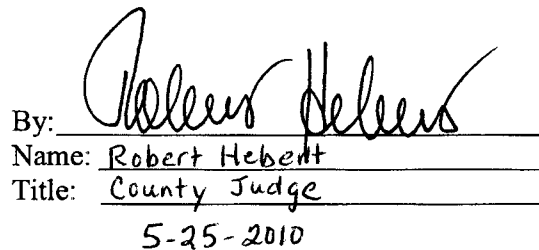 By: Robert Hebert
Name: Robert Hebert
Title: County Judge
5-25-2010